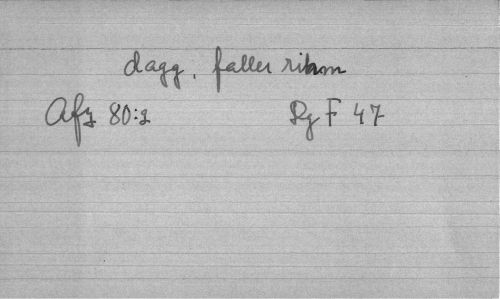 dagg, faller
Afz 80:2
Rg F 47